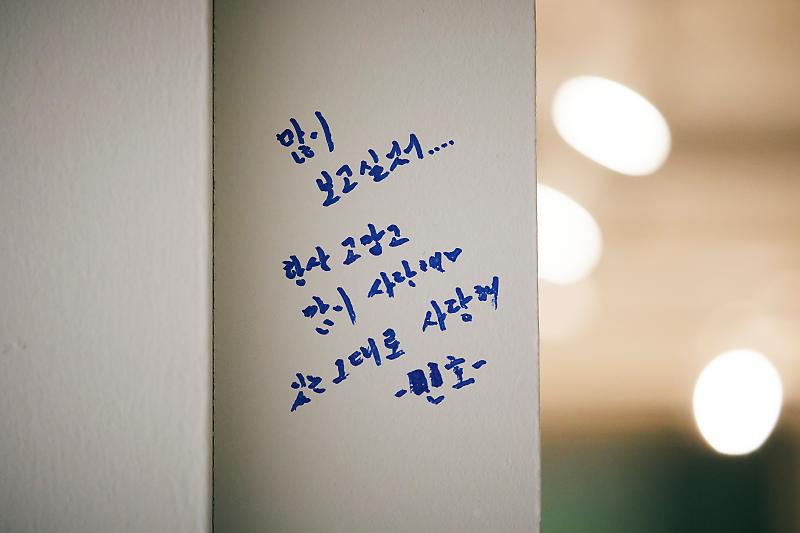 많이
보고싶었어....
항상 고맙고
많이 사랑해♥
있는 그대로 사랑해
-민호-